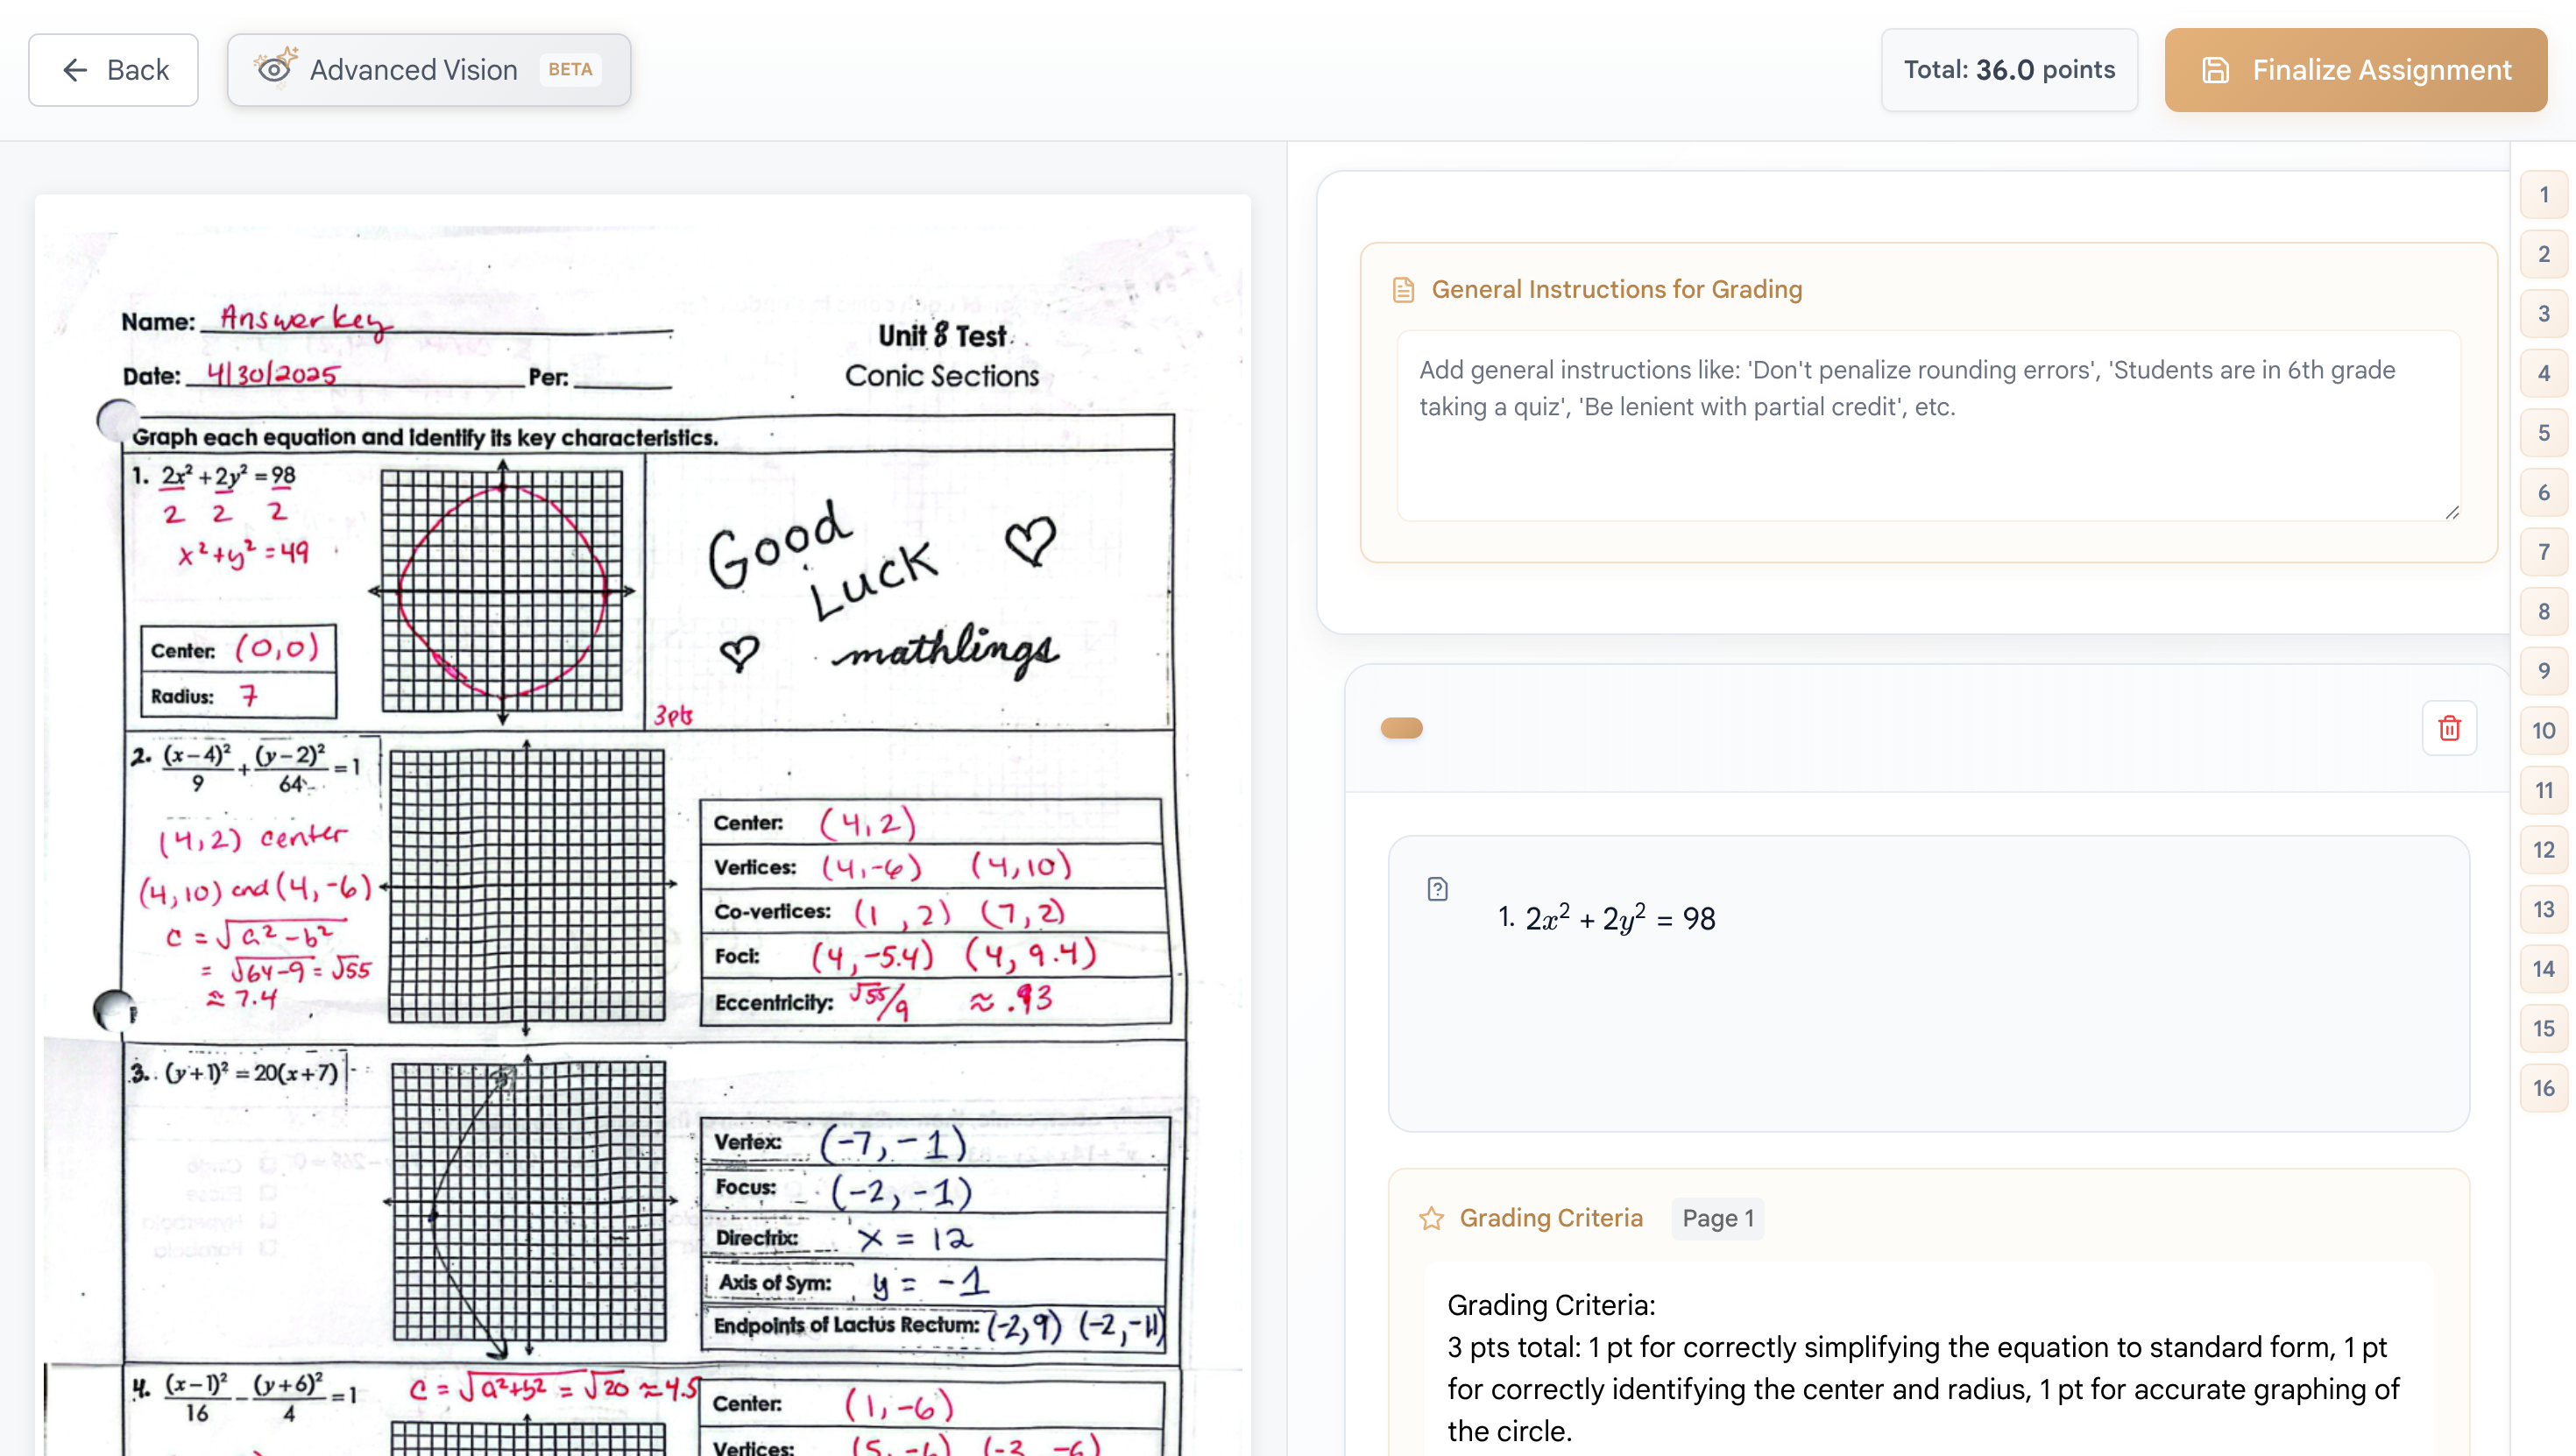 Back
Advanced Vision BETA
Total: 36.0 points
Finalize Assignment
Name: Answer key
Date: 4/30/2025 Per:
Unit 8 Test
Conic Sections
Graph each equation and identify its key characteristics.
1. 2x² + 2y² = 98
2 2 2
x² + y² = 49
Center: (0,0)
Radius: 7
Good
Luck
mathlings
3pts
2. (x-4)²/9 + (y-2)²/64 = 1
(4,2) center
(4,10) and (4,-6)
c = √a² - b²
= √64-9 = √55
≈ 7.4
Center: (4,2)
Vertices: (4,-6) (4,10)
Co-vertices: (1,2) (7,2)
Foci: (4,-5.4) (4,9.4)
Eccentricity: √55/9 ≈ .93
3. (y+1)² = 20(x+7)
Vertex: (-7,-1)
Focus: (-2,-1)
Directrix: x = 12
Axis of Sym: y = -1
Endpoints of Lactus Rectum: (-2,9) (-2,-11)
4. (x-1)²/16 - (y+6)²/4 = 1
c = √a²+b² = √20 ≈ 4.5
Center: (1,-6)
Vertices: (5,-6) (-3,-6)
General Instructions for Grading
Add general instructions like: 'Don't penalize rounding errors', 'Students are in 6th grade
taking a quiz', 'Be lenient with partial credit', etc.
1. 2x² + 2y² = 98
Grading Criteria Page 1
Grading Criteria:
3 pts total: 1 pt for correctly simplifying the equation to standard form, 1 pt
for correctly identifying the center and radius, 1 pt for accurate graphing of
the circle.
1
2
3
4
5
6
7
8
9
10
11
12
13
14
15
16